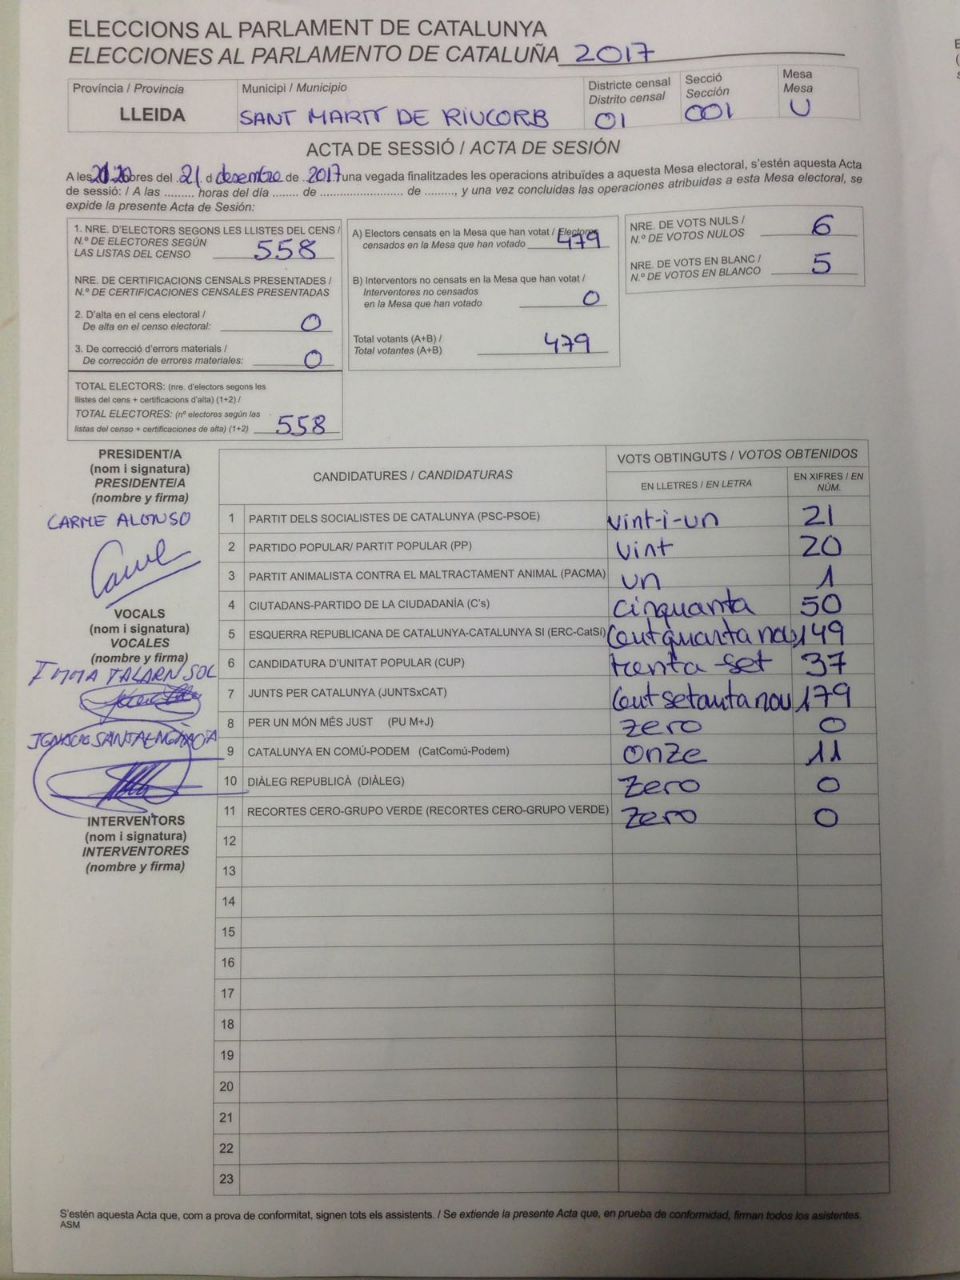 ELECCIONS AL PARLAMENT DE CATALUNYA
ELECCIONES AL PARLAMENTO DE CATALUÑA 2017
Província / Provincia
LLEIDA
Municipi / Municipio
SANT MARTÍ DE RIUCORB
Districte censal
Distrito censal
01
Secció
Sección
001
Mesa
Mesa
U
ACTA DE SESSIÓ / ACTA DE SESIÓN
A les hores del 21 d desembre de 2017 una vegada finalitzades les operacions atribuïdes a aquesta Mesa electoral, s'estén aquesta Acta
de sessió: / A las ......... horas del día ....... de ........................ de ........, y una vez concluidas las operaciones atribuidas a esta Mesa electoral, se
expide la presente Acta de Sesión:
1. NRE. D'ELECTORS SEGONS LES LLISTES DEL CENS /
N.º DE ELECTORES SEGÚN
LAS LISTAS DEL CENSO 558
NRE. DE CERTIFICACIONS CENSALS PRESENTADES /
N.º DE CERTIFICACIONES CENSALES PRESENTADAS
2. D'alta en el cens electoral /
De alta en el censo electoral: 0
3. De correcció d'errors materials /
De corrección de errores materiales: 0
TOTAL ELECTORS: (nre. d'electors segons les
llistes del cens + certificacions d'alta) (1+2) /
TOTAL ELECTORES: (nº electores según las
listas del censo + certificaciones de alta) (1+2) 558
A) Electors censats en la Mesa que han votat / Electores
censados en la Mesa que han votado 479
B) Interventors no censats en la Mesa que han votat /
Interventores no censados
en la Mesa que han votado 0
Total votants (A+B) /
Total votantes (A+B) 479
NRE. DE VOTS NULS /
N.º DE VOTOS NULOS 6
NRE. DE VOTS EN BLANC /
N.º DE VOTOS EN BLANCO 5
PRESIDENT/A
(nom i signatura)
PRESIDENTE/A
(nombre y firma)
CARME ALONSO
Carme
VOCALS
(nom i signatura)
VOCALES
(nombre y firma)
IMMA TALARN SOL
INTERVENTORS
(nom i signatura)
INTERVENTORES
(nombre y firma)
CANDIDATURES / CANDIDATURAS
VOTS OBTINGUTS / VOTOS OBTENIDOS
EN LLETRES / EN LETRA
EN XIFRES / EN
NÚM.
1 PARTIT DELS SOCIALISTES DE CATALUNYA (PSC-PSOE) vint-i-un 21
2 PARTIDO POPULAR/ PARTIT POPULAR (PP) vint 20
3 PARTIT ANIMALISTA CONTRA EL MALTRACTAMENT ANIMAL (PACMA) un 1
4 CIUTADANS-PARTIDO DE LA CIUDADANÍA (C's) cinquanta 50
5 ESQUERRA REPUBLICANA DE CATALUNYA-CATALUNYA SI (ERC-CatSí) Cent quaranta nou 149
6 CANDIDATURA D'UNITAT POPULAR (CUP) trenta-set 37
7 JUNTS PER CATALUNYA (JUNTSxCAT) Cent setanta nou 179
8 PER UN MÓN MÉS JUST (PU M+J) zero 0
9 CATALUNYA EN COMÚ-PODEM (CatComú-Podem) onze 11
10 DIÀLEG REPUBLICÀ (DIÀLEG) zero 0
11 RECORTES CERO-GRUPO VERDE (RECORTES CERO-GRUPO VERDE) zero 0
12
13
14
15
16
17
18
19
20
21
22
23
S'estén aquesta Acta que, com a prova de conformitat, signen tots els assistents. / Se extiende la presente Acta que, en prueba de conformidad, firman todos los asistentes.
ASM